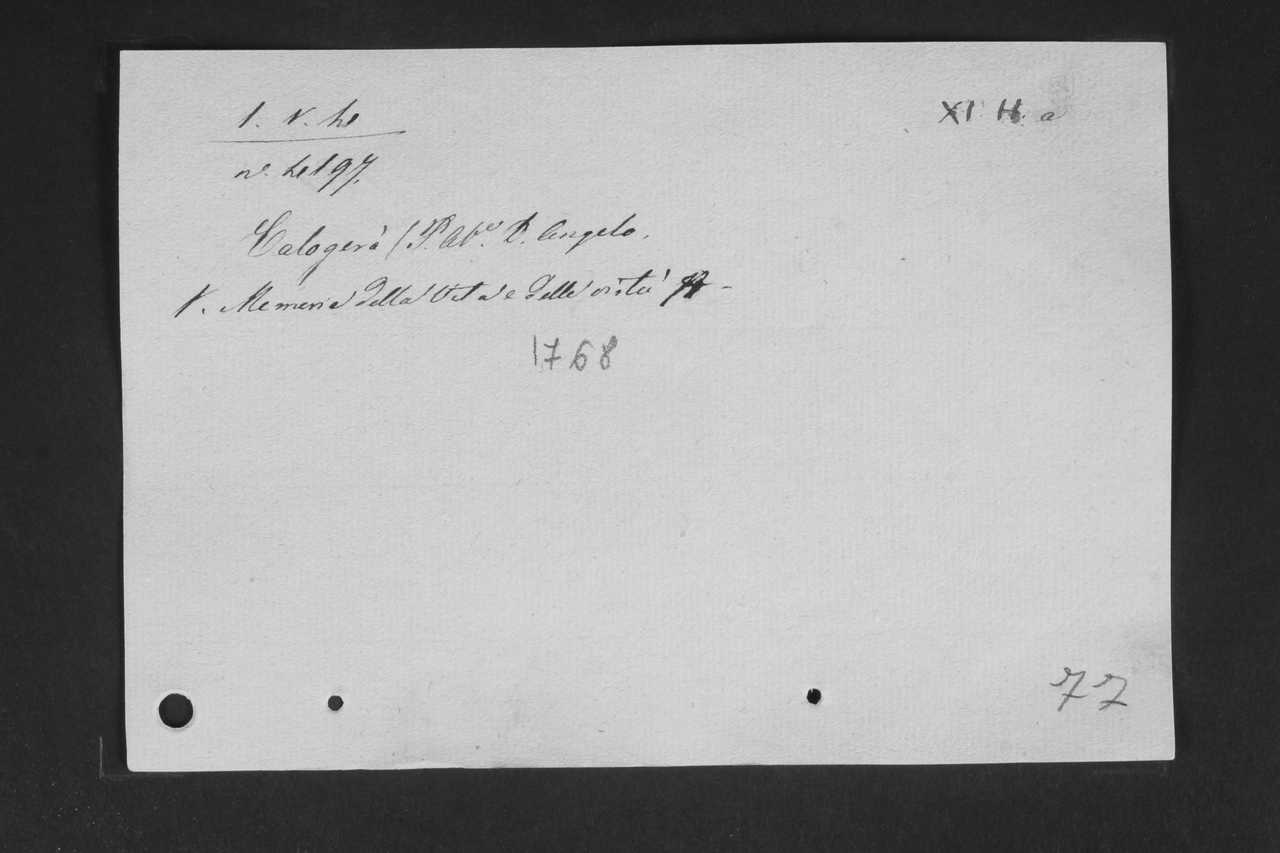 1. V. 4
XI H a
n.º 4197.
Calogerà (P. Ab.e D. Angelo.
V. Memorie della Vita e delle virtù
1768
77